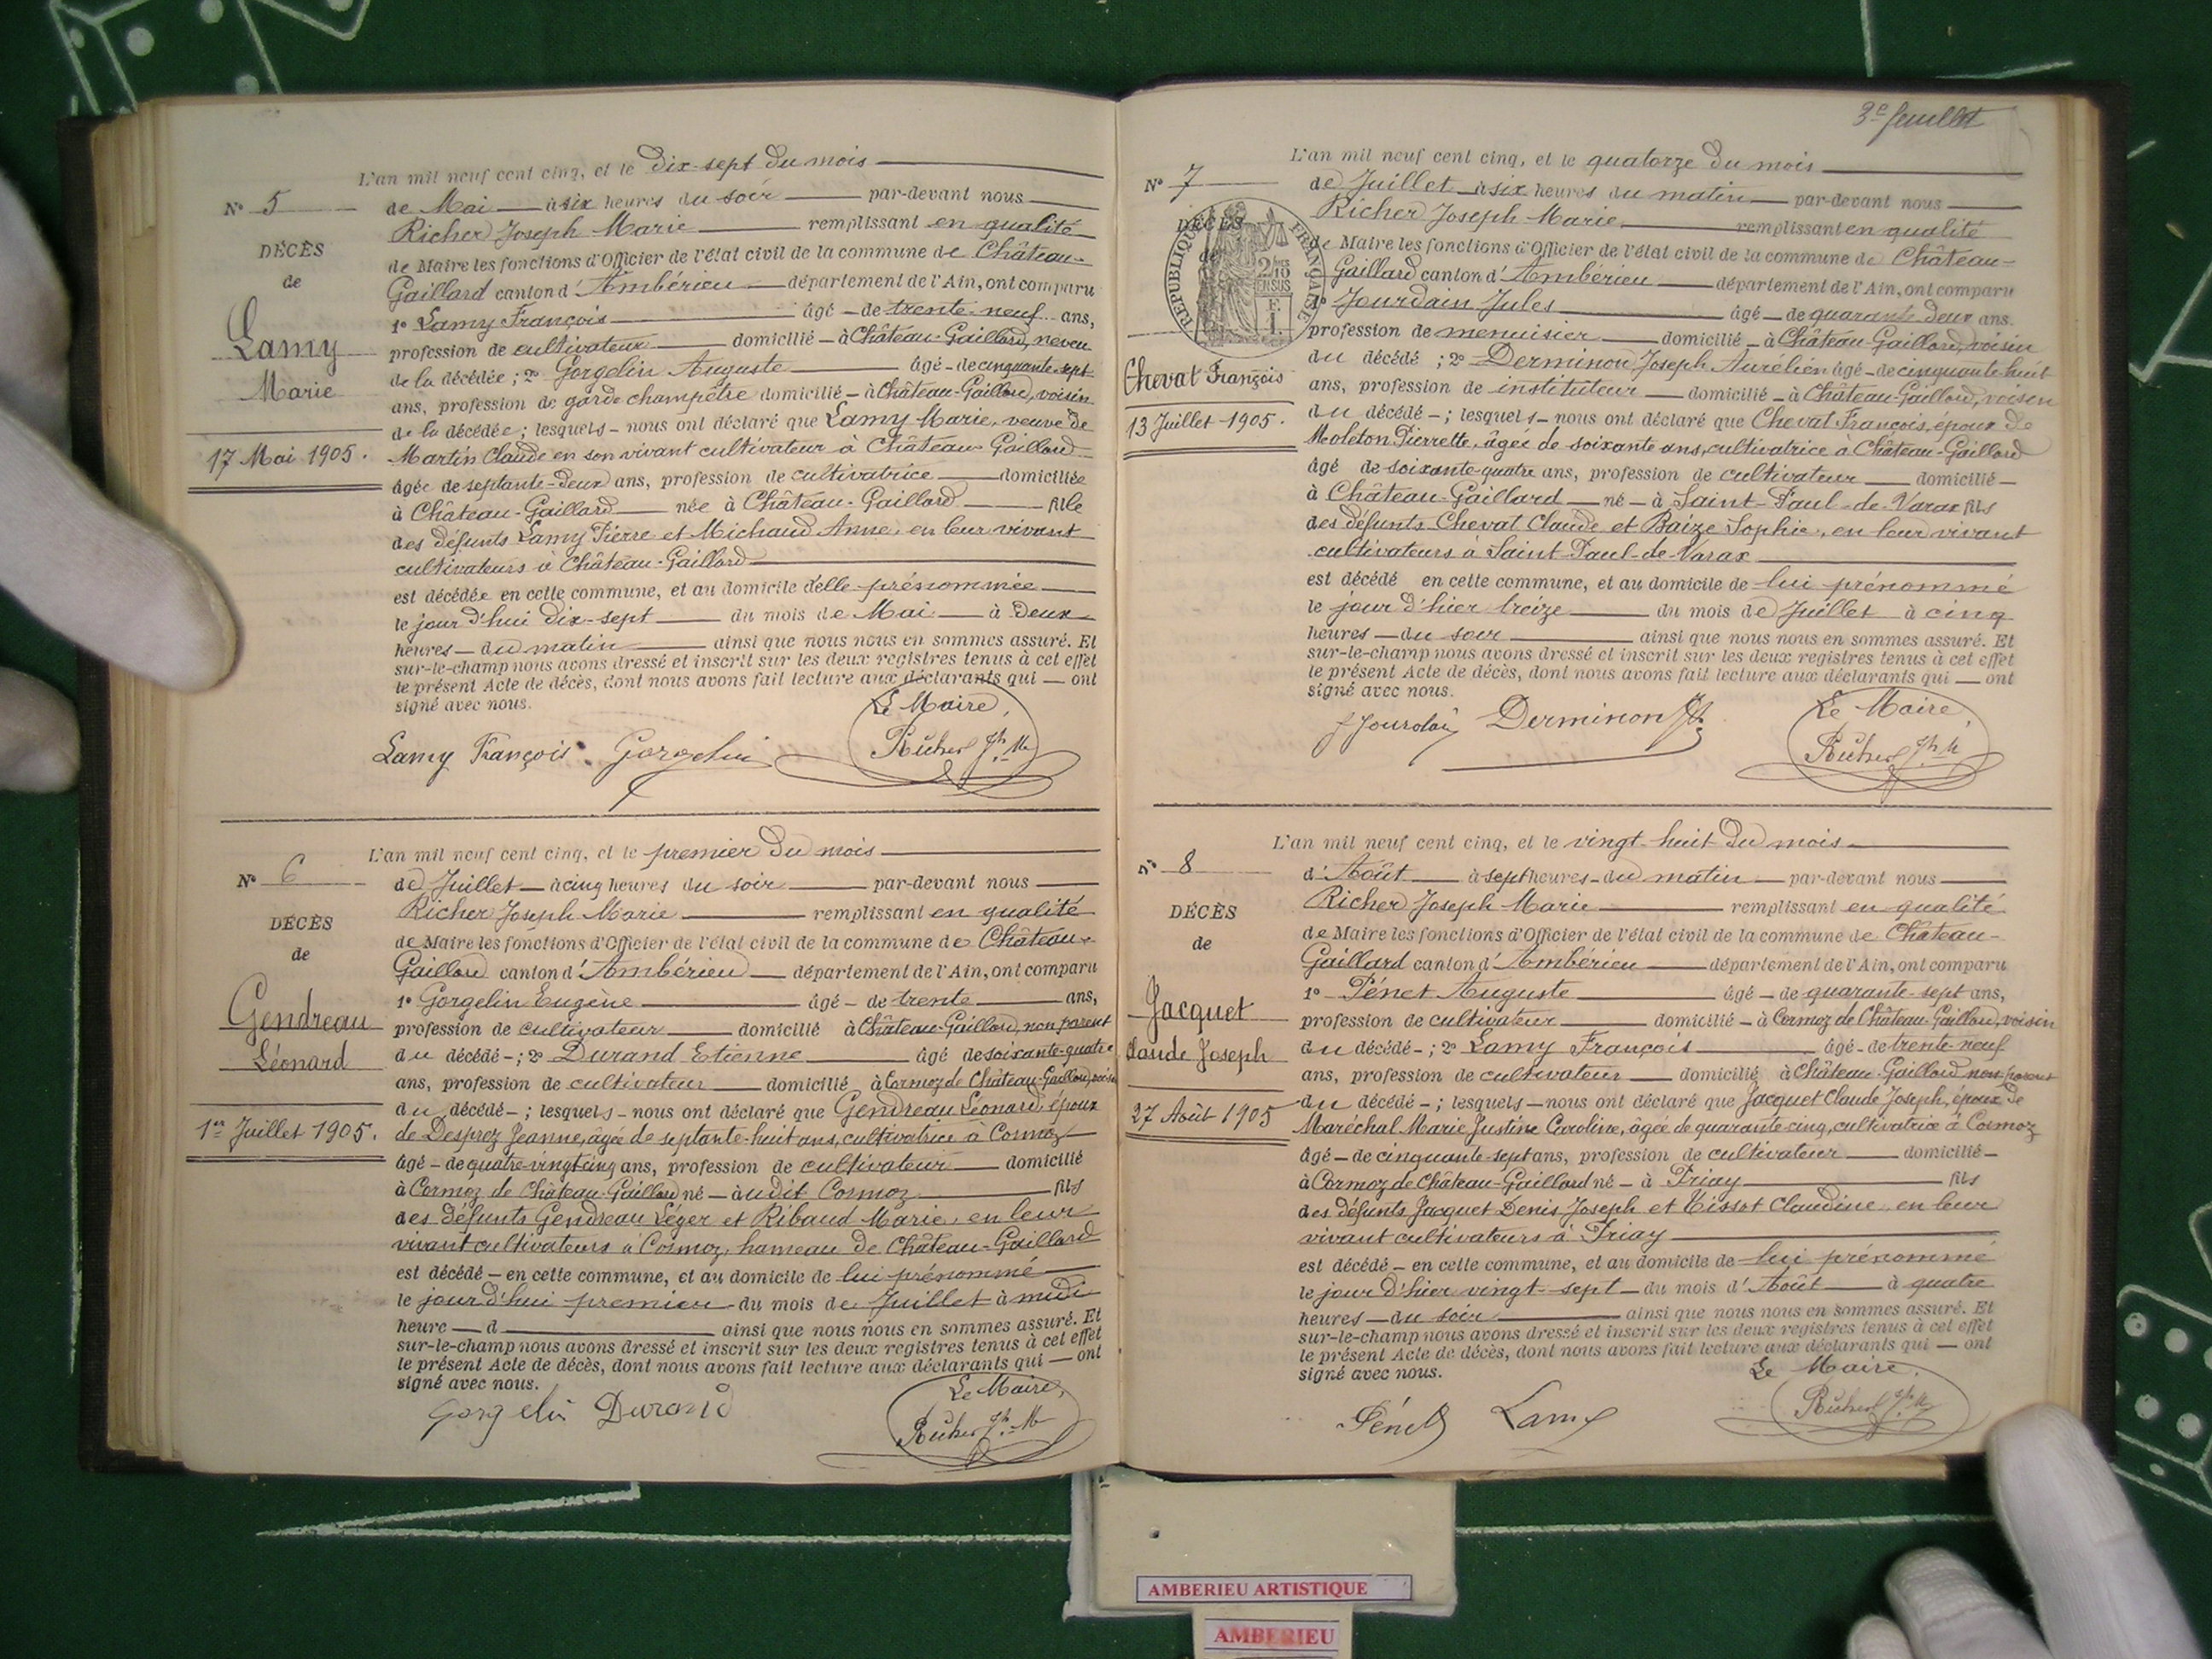 L'an mil neuf cent cinq, et le dix-sept du mois
N° 5
de Mai à six heures du soir par-devant nous
Richer Joseph Marie remplissant en qualité
DÉCÈS
de Maire les fonctions d'Officier de l'état civil de la commune de Château-
de
Gaillard canton d'Ambérieu département de l'Ain, ont comparu
1° Lamy François âgé de trente-neuf ans,
Lamy
profession de cultivateur domicilié à Château-Gaillard, neveu
de la décédée ; 2° Gorgelin Auguste âgé de cinquante-sept
Marie
ans, profession de garde champêtre domicilié à Château-Gaillard, voisin
de la décédée ; lesquels nous ont déclaré que Lamy Marie, veuve de
17 Mai 1905.
Martin Claude en son vivant cultivateur à Château-Gaillard
âgée de septante-deux ans, profession de cultivatrice domiciliée
à Château-Gaillard née à Château-Gaillard fille
des défunts Lamy Pierre et Michaud Anne, en leur vivant
cultivateurs à Château-Gaillard
est décédée en cette commune, et au domicile d'elle prénommée
le jour d'hui dix-sept du mois de Mai à deux
heures du matin ainsi que nous nous en sommes assuré. Et
sur-le-champ nous avons dressé et inscrit sur les deux registres tenus à cet effet
le présent Acte de décès, dont nous avons fait lecture aux déclarants qui ont
signé avec nous.
Le Maire,
Lamy François Gorgelin Richer Jh M
L'an mil neuf cent cinq, et le premier du mois
N° 6
de Juillet à cinq heures du soir par-devant nous
Richer Joseph Marie remplissant en qualité
DÉCÈS
de Maire les fonctions d'Officier de l'état civil de la commune de Château-
de
Gaillard canton d'Ambérieu département de l'Ain, ont comparu
1° Gorgelin Eugène âgé de trente ans,
Gendreau
profession de cultivateur domicilié à Château-Gaillard, non parent
du décédé ; 2° Durand Etienne âgé de soixante-quatre
Léonard
ans, profession de cultivateur domicilié à Cormoz de Château-Gaillard, voisin
du décédé ; lesquels nous ont déclaré que Gendreau Léonard, époux
1er Juillet 1905.
de Desprez Jeanne, âgée de septante-huit ans, cultivatrice à Cormoz
âgé de quatre-vingt-cinq ans, profession de cultivateur domicilié
à Cormoz de Château-Gaillard né audit Cormoz fils
des défunts Gendreau Léger et Ribaud Marie, en leur
vivant cultivateurs à Cormoz, hameau de Château-Gaillard
est décédé en cette commune, et au domicile de lui prénommé
le jour d'hui premier du mois de Juillet à midi
heure d ainsi que nous nous en sommes assuré. Et
sur-le-champ nous avons dressé et inscrit sur les deux registres tenus à cet effet
le présent Acte de décès, dont nous avons fait lecture aux déclarants qui ont
signé avec nous.
Le Maire,
Gorgelin Durand Richer Jh M
3e feuillet
L'an mil neuf cent cinq, et le quatorze du mois
N° 7
de Juillet à six heures du matin par-devant nous
Richer Joseph Marie remplissant en qualité
DÉCÈS
de
RÉPUBLIQUE FRANÇAISE
2/10 EN SUS
1 F.
de Maire les fonctions d'Officier de l'état civil de la commune de Château-
Gaillard canton d'Ambérieu département de l'Ain, ont comparu
1° Jourdain Jules âgé de quarante-deux ans.
profession de menuisier domicilié à Château-Gaillard, voisin
du décédé ; 2° Derminon Joseph Aurélien âgé de cinquante-huit
Chevat François
ans, profession de instituteur domicilié à Château-Gaillard, voisin
du décédé ; lesquels nous ont déclaré que Chevat François, époux de
13 Juillet 1905.
Moleton Pierrette, âgée de soixante ans, cultivatrice à Château-Gaillard
âgé de soixante-quatre ans, profession de cultivateur domicilié
à Château-Gaillard né à Saint-Paul-de-Varax fils
des défunts Chevat Claude et Baize Sophie, en leur vivant
cultivateurs à Saint-Paul-de-Varax
est décédé en cette commune, et au domicile de lui prénommé
le jour d'hier treize du mois de Juillet à cinq
heures du soir ainsi que nous nous en sommes assuré. Et
sur-le-champ nous avons dressé et inscrit sur les deux registres tenus à cet effet
le présent Acte de décès, dont nous avons fait lecture aux déclarants qui ont
signé avec nous.
Le Maire,
J Jourdain Derminon Richer Jh M
L'an mil neuf cent cinq, et le vingt-huit du mois
N° 8
d'Août à sept heures du matin par-devant nous
Richer Joseph Marie remplissant en qualité
DÉCÈS
de Maire les fonctions d'Officier de l'état civil de la commune de Château-
de
Gaillard canton d'Ambérieu département de l'Ain, ont comparu
1° Pénet Auguste âgé de quarante-sept ans,
Jacquet
profession de cultivateur domicilié à Cormoz de Château-Gaillard, voisin
du décédé ; 2° Lamy François âgé de trente-neuf
Claude Joseph
ans, profession de cultivateur domicilié à Château-Gaillard non parent
du décédé ; lesquels nous ont déclaré que Jacquet Claude Joseph, époux de
27 Août 1905
Maréchal Marie Justine Caroline, âgée de quarante-cinq, cultivatrice à Cormoz
âgé de cinquante-sept ans, profession de cultivateur domicilié
à Cormoz de Château-Gaillard né à Priay fils
des défunts Jacquet Denis Joseph et Tissot Claudine, en leur
vivant cultivateurs à Priay
est décédé en cette commune, et au domicile de lui prénommé
le jour d'hier vingt-sept du mois d'Août à quatre
heures du soir ainsi que nous nous en sommes assuré. Et
sur-le-champ nous avons dressé et inscrit sur les deux registres tenus à cet effet
le présent Acte de décès, dont nous avons fait lecture aux déclarants qui ont
signé avec nous.
Le Maire,
Pénet Lamy Richer Jh M
AMBERIEU ARTISTIQUE
AMBERIEU